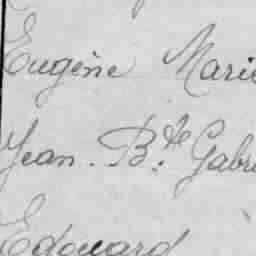 Eugène Marie
Jean. B.te Gabri
Edouard